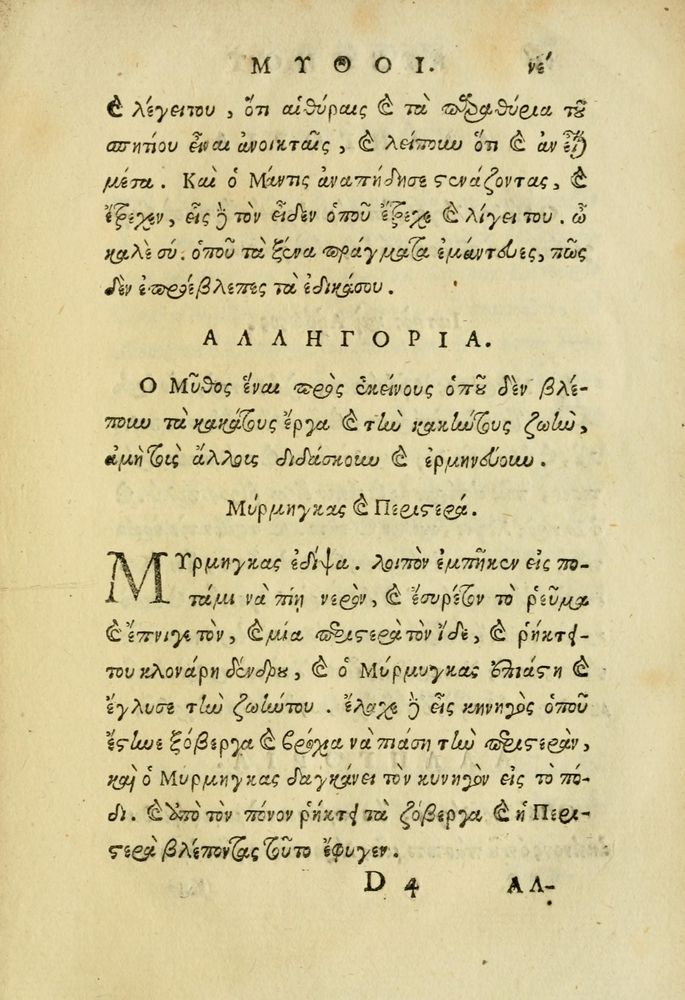 ΜΥΘΟΙ. νε΄
Ϗ λέγει του, ὅτι αἱ θύραις ϗ τὰ παραθύρια τȣ͂
σπητίου εἶναι ἀνοικταῖς, ϗ λείπουν ὅτι ϗ ἂν ἔχῃ
μέσα. Καὶ ὁ Μάντις ἀναπήδησε στενάζοντας, ϗ
ἔτρεχεν, εἷς δὲ τὸν εἶδεν ὁποῦ ἔτρεχε ϗ λέγει του. ὦ
καλὲ σύ. ὁποῦ τὰ ξένα πράγματα ἐμάντευες, πῶς
δὲν ἐπροέβλεπες τὰ ἐδικάσου.
ΑΛΛΗΓΟΡΙΑ.
Ο Μῦθος ἔναι πρὸς ἐκείνους ὁπȣ͂ δὲν βλέ-
πουν τὰ κακάτους ἔργα ϗ τὴν κακήτους ζωὴν,
ἀμὴ τοὶς ἄλλοις διδάσκουν ϗ ἑρμηνεύουν.
Μύρμηγκας ϗ Περιστερά.
ΜΥΡμηγκας ἐδίψα. λοιπὸν ἐμπῆκεν εἰς πο-
τάμι νὰ πίῃ νερὸν, ϗ ἔσυρέτον τὸ ῥεῦμα
ϗ ἔπνιγε τὸν, ϗ μία περιστερὰ τὸν ἶδε, ϗ ῥήκτει-
του κλονάρη δένδρȣ, ϗ ὁ Μύρμυγκας ἐπιάστη ϗ
ἔγλυσε τὴν ζωήτου. ἔλαχε δὲ εἷς κηνηγὸς ὁποῦ
ἔστηνε ξόβεργα ϗ βρόχα νὰ πιάσῃ τὴν περιστερὰν,
καὶ ὁ Μυρμηγκας δαγκάνει τὸν κυνηγὸν εἰς τὸ πό-
δι. ϗ ἀπὸ τὸν πόνον ῥήκτει τὰ ξόβεργα ϗ ἡ Περι-
στερὰ βλέποντας τοῦτο ἔφυγεν.
D 4 ΑΛ-